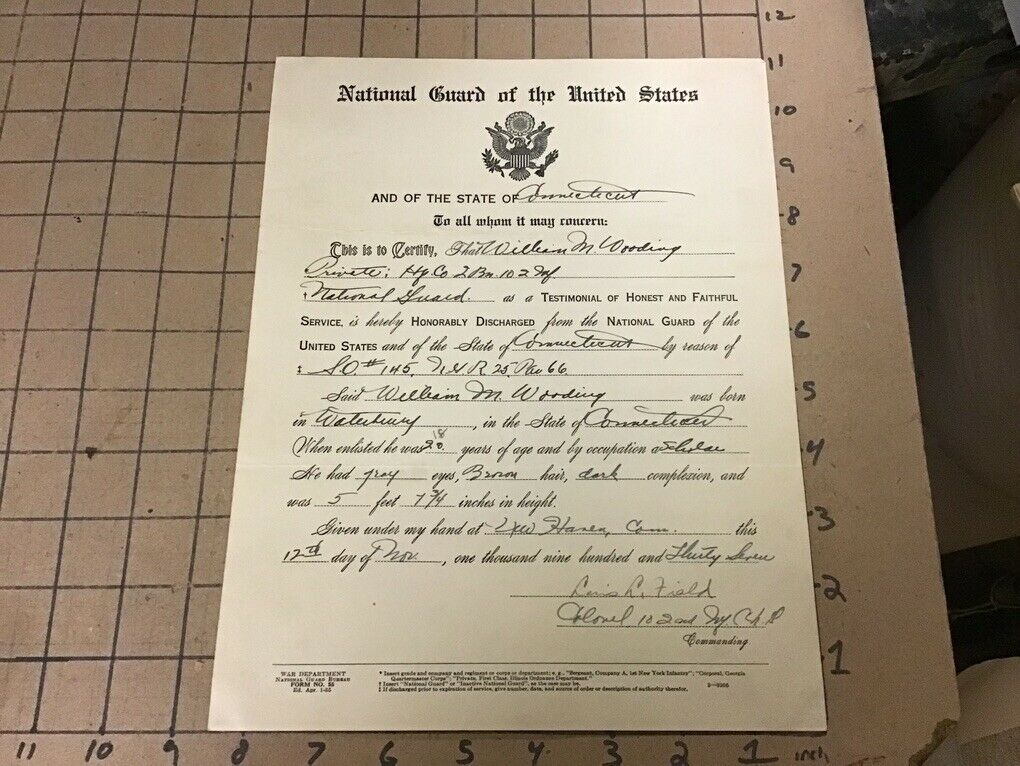 12
11
National Guard of the United States
10
9
AND OF THE STATE OF Connecticut
8
To all whom it may concern:
This is to Certify, That William M. Wooding
7
Private; Hq. Co 2 Bn. 102 Inf
† National Guard. as a TESTIMONIAL OF HONEST AND FAITHFUL
SERVICE, is hereby HONORABLY DISCHARGED from the NATIONAL GUARD of the
6
UNITED STATES and of the State of Connecticut by reason of
‡ S.O. #145, N.G.R 25, Par 66
5
Said William M. Wooding was born
in Waterbury, in the State of Connecticut
18
When enlisted he was 20 years of age and by occupation a
4
He had gray eyes, Brown hair, dark complexion, and
was 5 feet 7 3/4 inches in height.
3
Given under my hand at New Haven, Conn. this
12th day of Nov., one thousand nine hundred and Thirty Seven
2
L. Field
Colonel 102nd Inf
Commanding.
1
WAR DEPARTMENT
NATIONAL GUARD BUREAU
FORM NO. 55
Ed. Apr. 1-35
* Insert grade and company and regiment or corps or department; e. g., "Sergeant, Company A, 1st New York Infantry"; "Corporal, Georgia
Quartermaster Corps"; "Private, First Class, Illinois Ordnance Department."
† Insert "National Guard" or "Inactive National Guard", as the case may be.
‡ If discharged prior to expiration of service, give number, date, and source of order or description of authority therefor.
11 10 9 8 7 6 5 4 3 2 1 inch